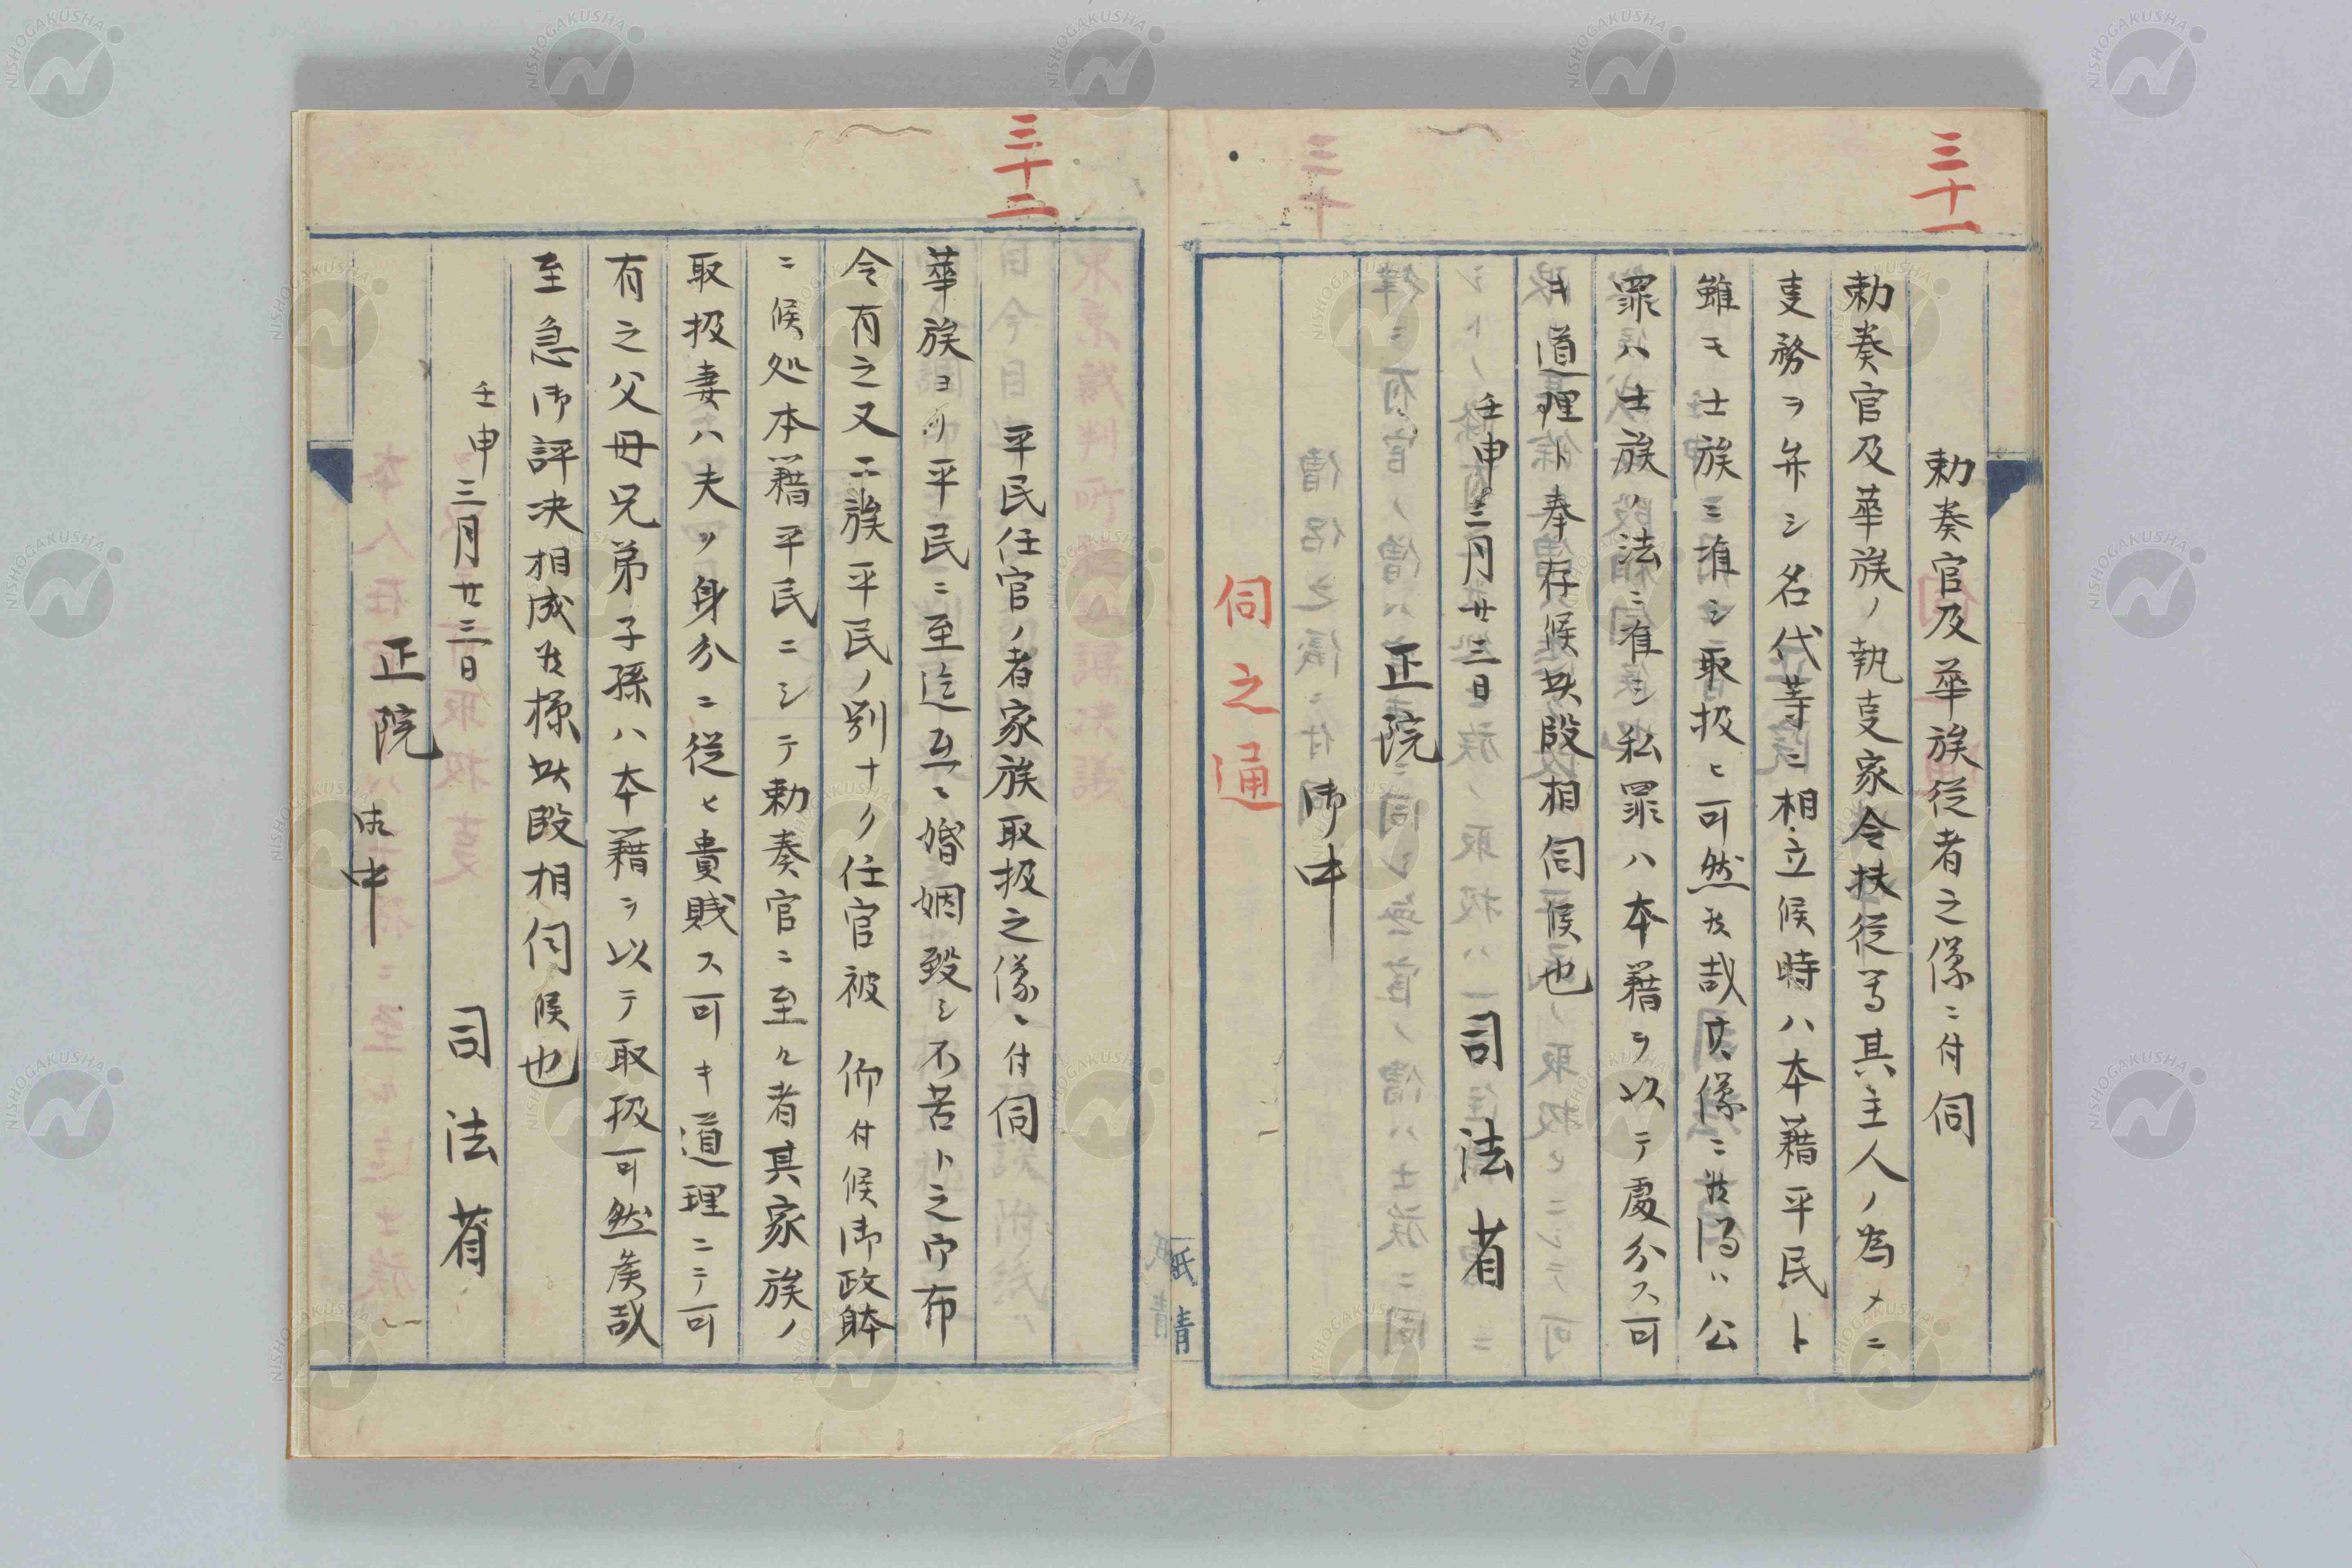 三十一
勅奏官及華族従者之儀ニ付伺
勅奏官及華族ノ執事家令扶従等其主人ノ為メニ
事務ヲ弁シ名代等ニ相立候時ハ本籍平民ト
雖モ士族ニ准シ取扱ヒ可然哉其儀ニ候得ハ公
罪ハ士族ノ法ニ准シ私罪ハ本籍ヲ以テ処分ス可
キ道理ト奉存候此段相伺候也
壬申三月廿三日 司法省
正院
御中
伺之通
三十二
平民任官ノ者家族取扱之儀ニ付伺
華族ヨリ平民ニ至迄互ニ婚姻致シ不苦ト之御布
令有之又士族平民ノ別ナク任官被 仰付候御政体
ニ候処本籍平民ニシテ勅奏官ニ至ル者其家族ノ
取扱妻ハ夫ノ身分ニ従ヒ貴賤ス可キ道理ニテ可
有之父母兄弟子孫ハ本籍ヲ以テ取扱可然候哉
至急御評決相成候様此段相伺候也
壬申三月廿三日 司法省
正院 御中